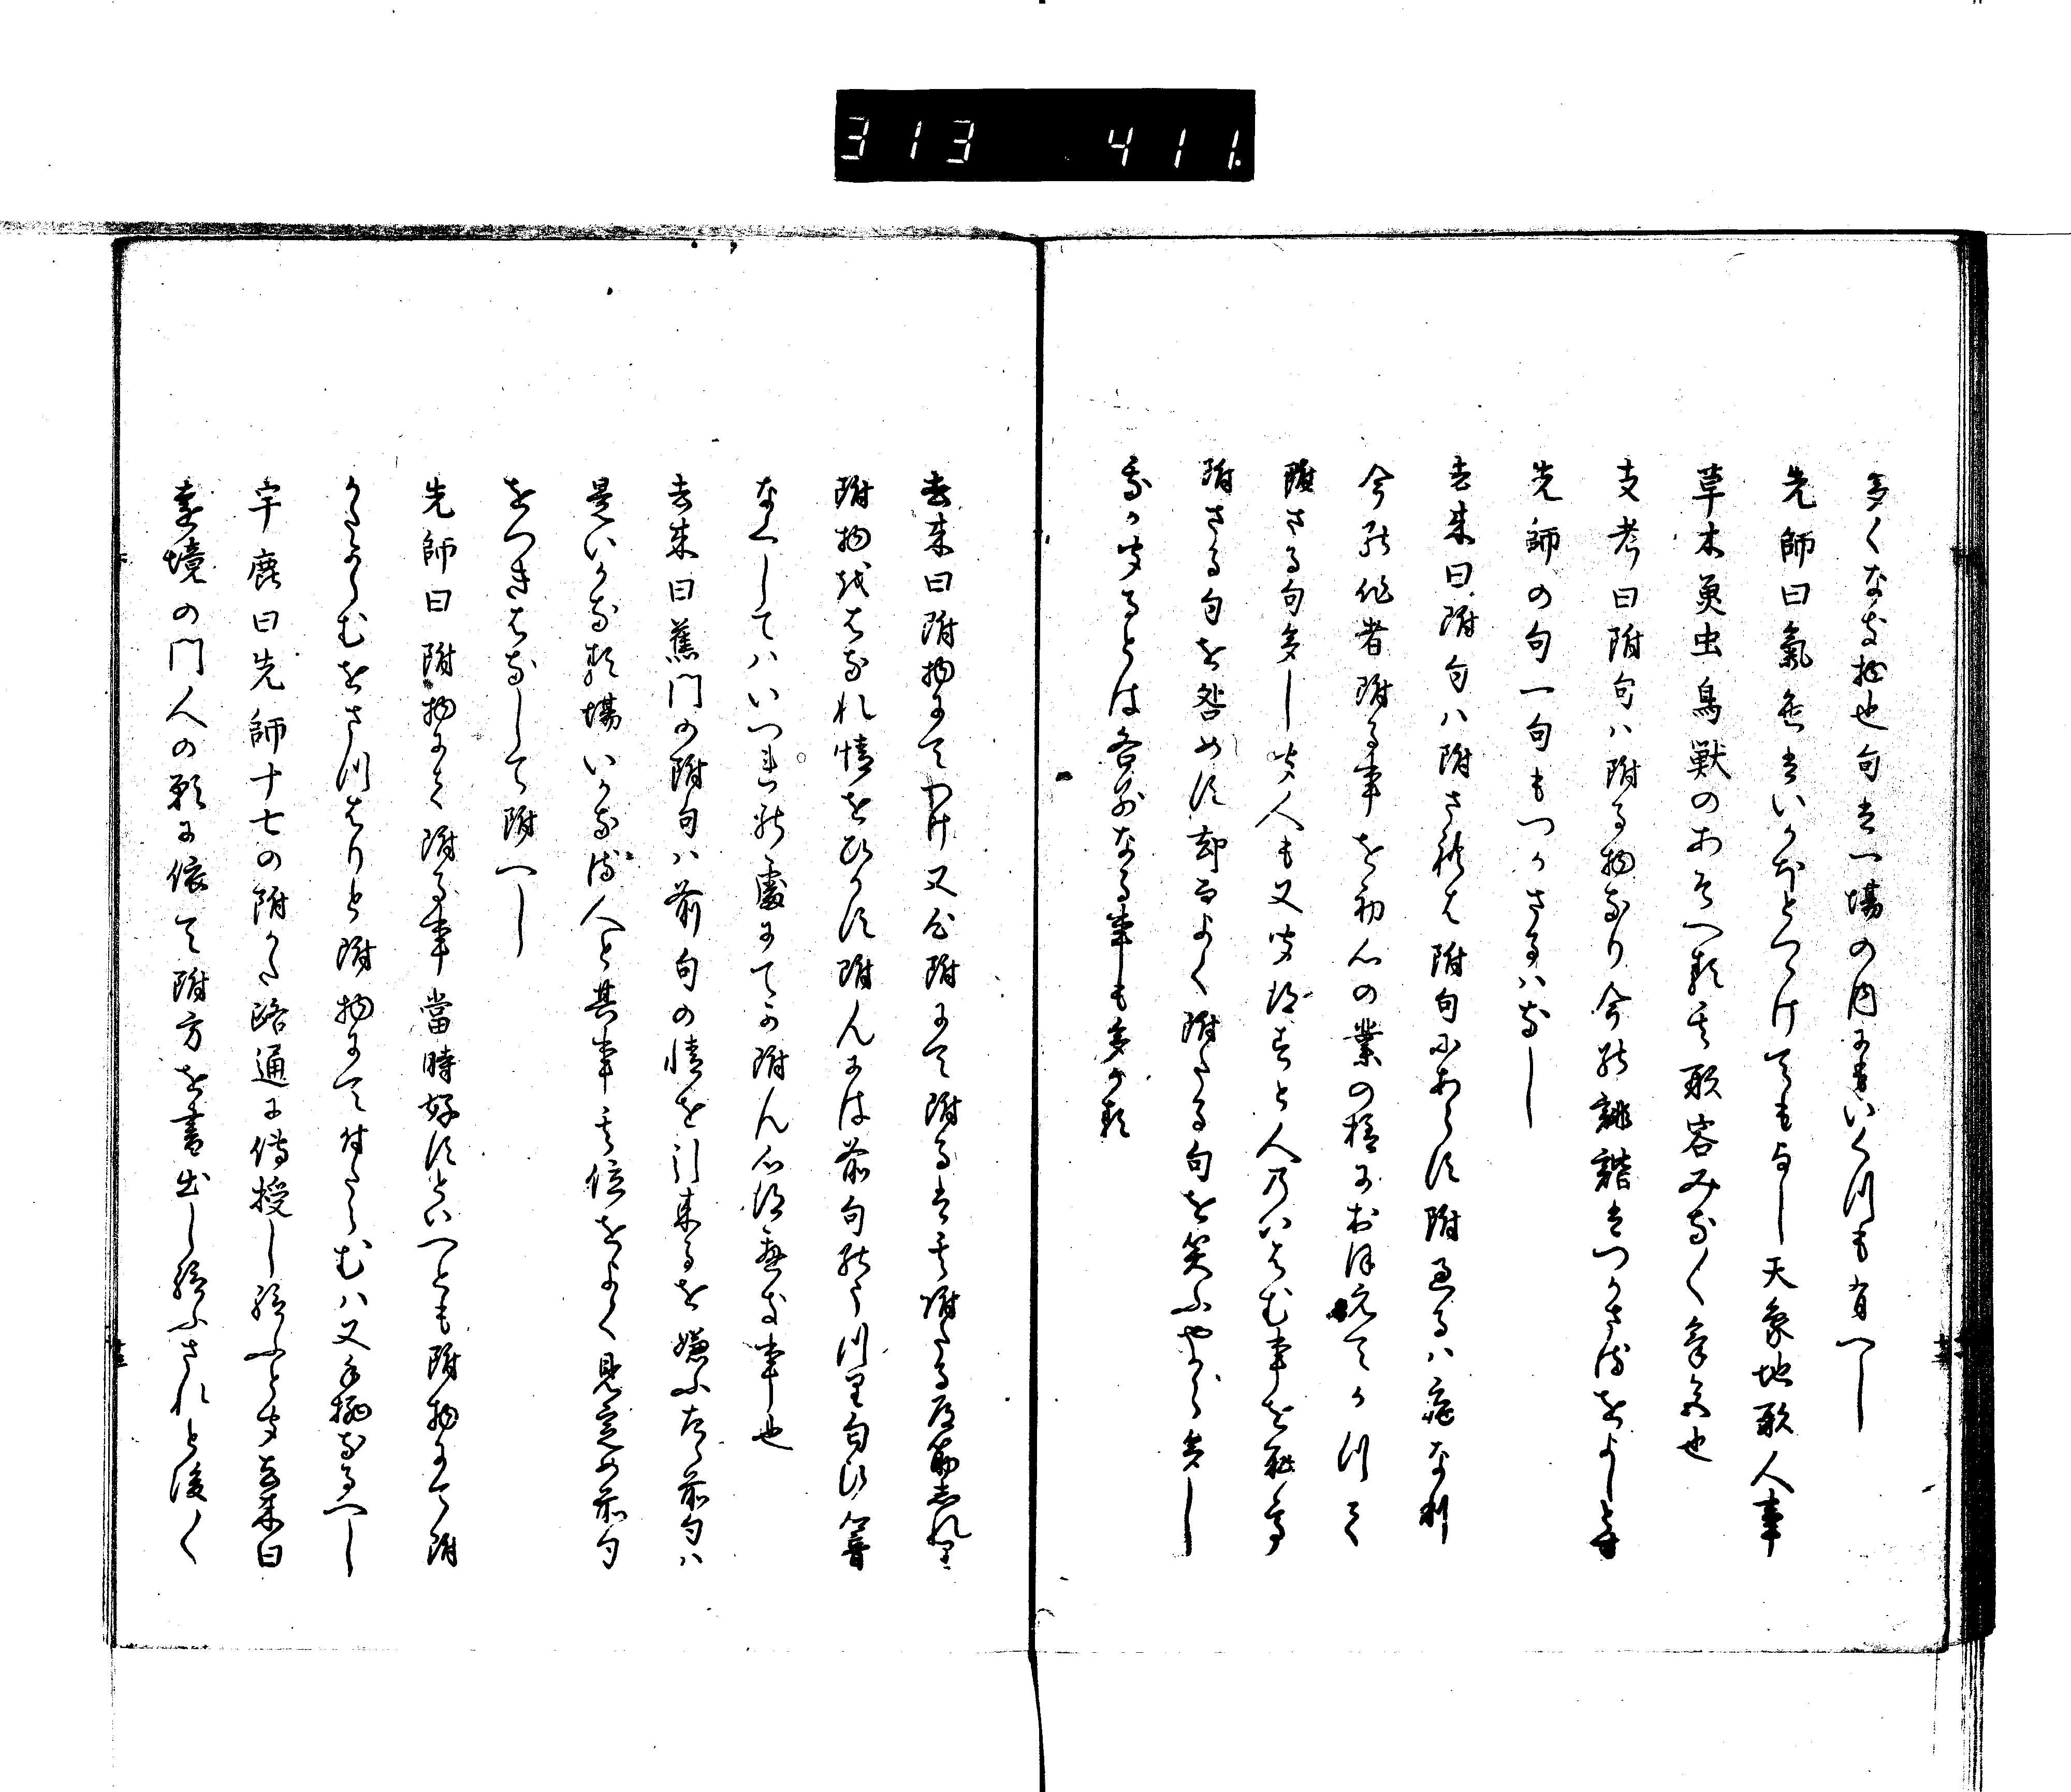 313 411.
多くなる拙也句は一場の内にもいくつも有へし
先師曰氣色はいかほとつゝけてもよし天象地形人事
草木魚虫鳥獣のあそへる其形容みな〱氣色也
支考曰附句ハ附る物なり今の誹諧はつかさるをよしとす
先師の句一句もつかさるハなし
去来曰附句ハ附されは附句にあらす附過るハ病なり
今の作者附る事を初心の業の様におほえてかつて
附さる句多し聞人も又聞得すと人のいはむ事を恥て
附さる句を咎めす却てよく附たる句を笑ふやから多し
我か聞るとは各別なる事も多かる
去来曰附物にてつけ又心附にて附るは其附たる道筋しれり
附物をはなれ情をひかす附んには前句のうつり匂ひ響
なくしてハいつれの處にてか附ん心得へき事也
去来曰蕉門の附句ハ前句の情を引来るを嫌ふたゝ前句ハ
是いかなる場いかなる人と其事其位をよく見定め前句
をつきはなして附へし
先師曰附物にて附る事當時好すといへとも附物にて附
かたからむをさつはりと附物にて付たらむハ又手柄なるへし
宇鹿曰先師十七の附かた路通に傳授し給ふと聞去来曰
遠境の門人の願に依て附方を書出し給ふされと後〱